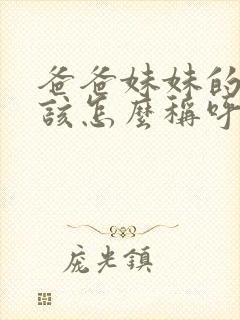 爸爸妹妹的
該怎麼稱呼
龐光鎮